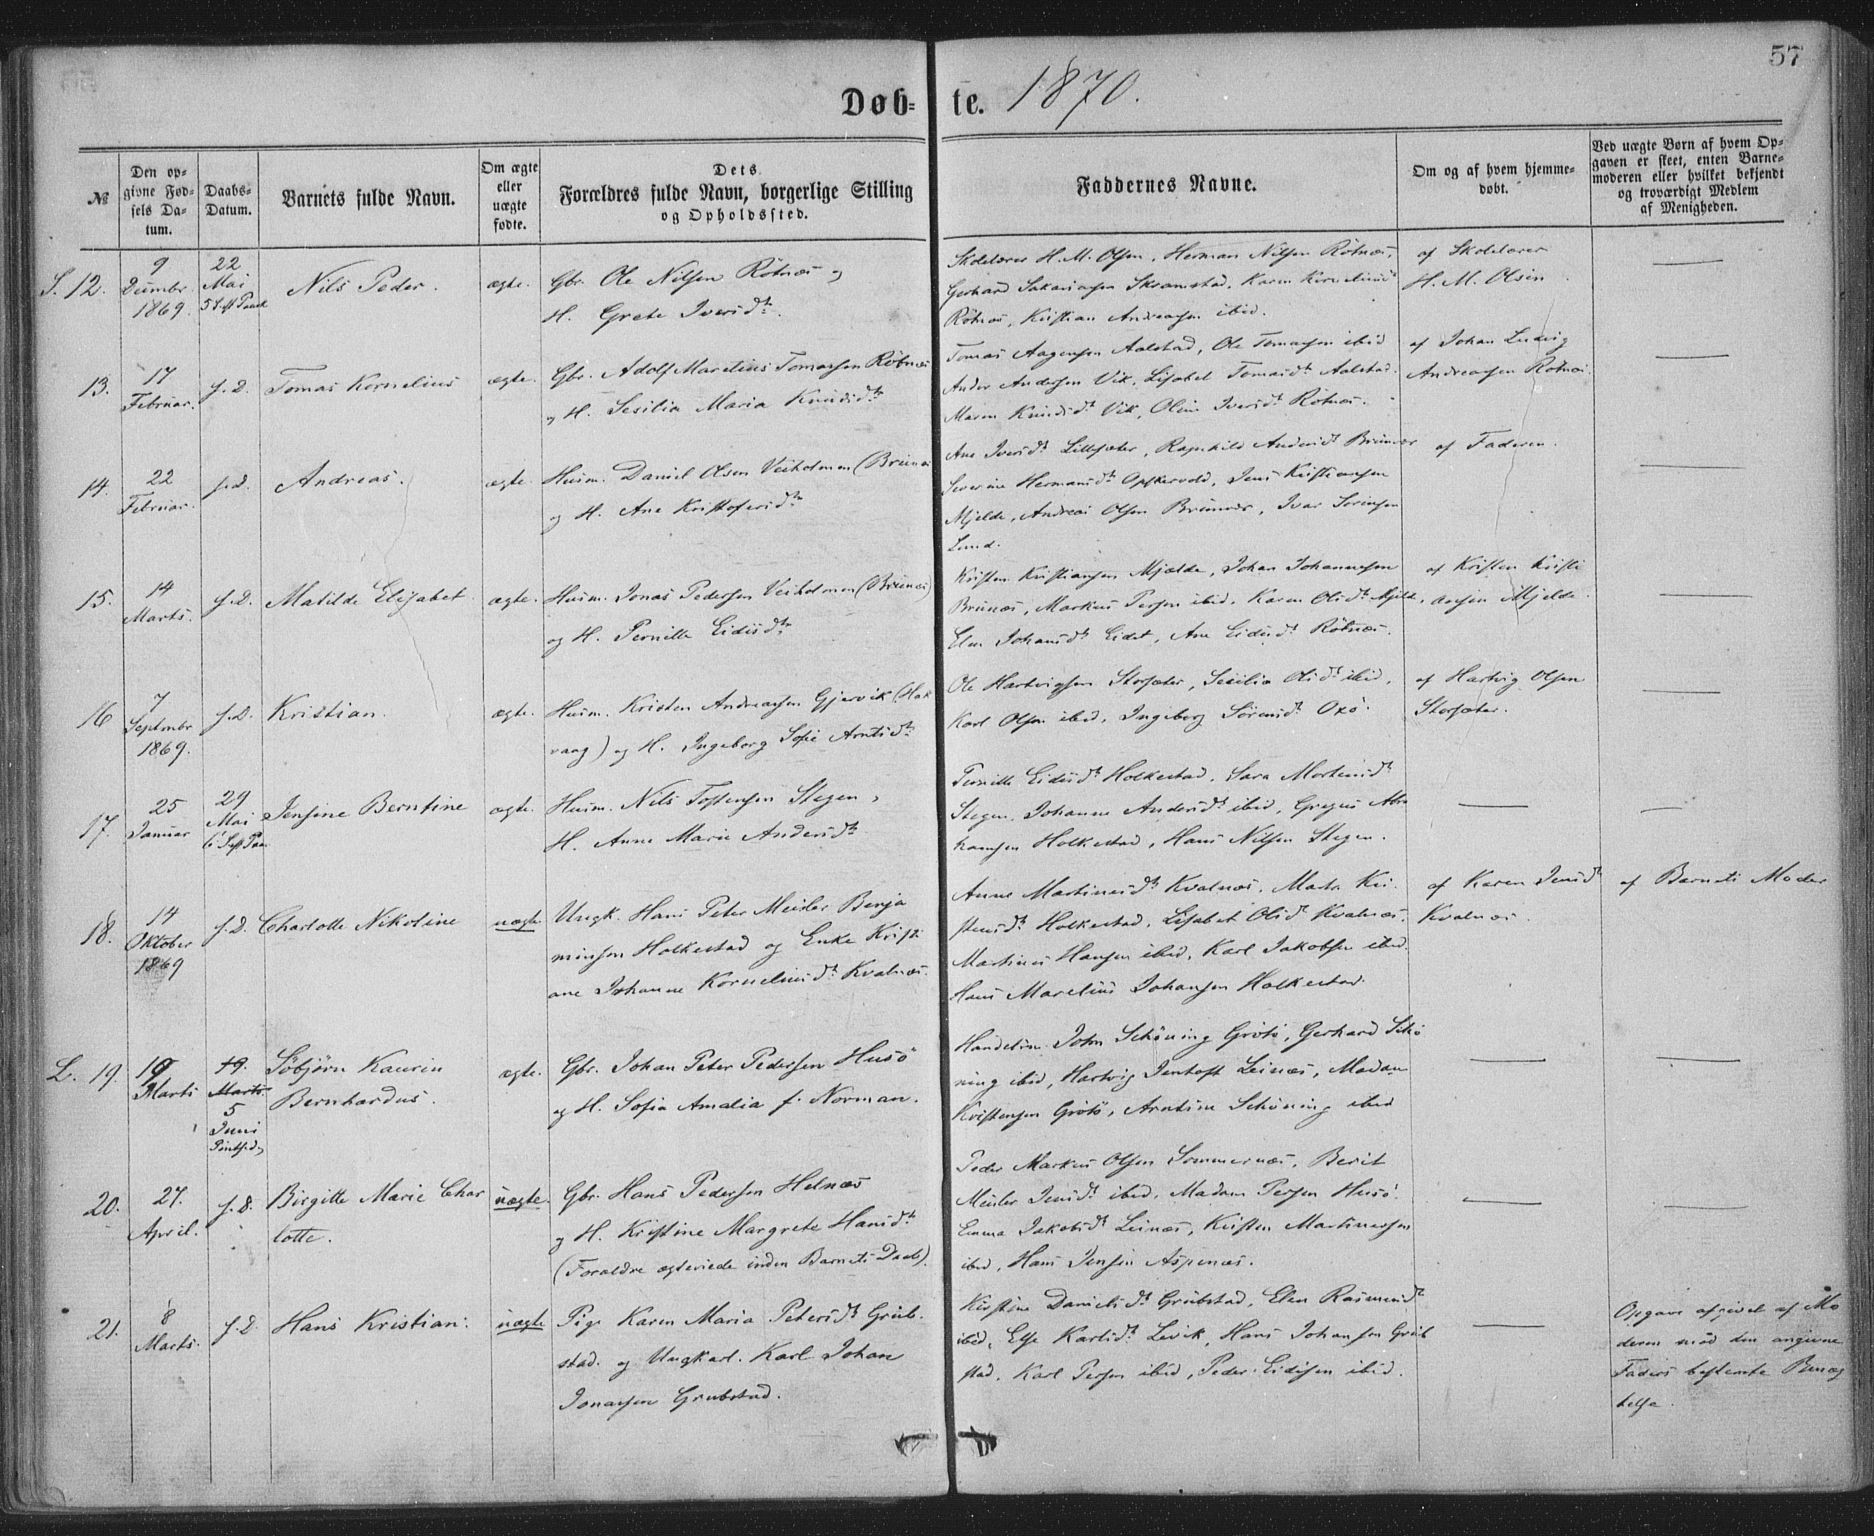 57
Døb- te. 1870.
№
Den op-
givne Fød-
sels Da-
tum.
Daabs-
Datum.
Barnets fulde Navn.
Om ægte
eller
uægte
fødte.
Dets
Forældres fulde Navn, borgerlige Stilling
og Opholdssted.
Faddernes Navne.
Om og af hvem hjemme-
døbt.
Ved uægte Børn af hvem Op-
gaven er skeet, enten Barne-
moderen eller hvilket bekjendt
og troværdigt Medlem
af Menigheden.
S. 12.
9
Decmbr
1869.
22
Mai
Nils Peder.
ægte.
Gbr. Ole Nilsen Rötnæs og
H. Grete Iversdtr.
Skolelærer H. M. Olsen, Herman Nilsen Rötnæs,
Gerhard Sakariassen Skramstad, Karen Kornelius
Rötnæs, Kristian Andreassen ibid.
af Skolelærer
H. M. Olsen
13.
17
Februar.
s. D.
Tomas Kornelius
ægte.
Gbr. Adolf Marelius Tomassen Rötnæs
og H. Sesilia Maria Knudsdtr
Tomas Aagensen Aalstad, Ole Tomassen ibid
Anders Andersen Vik, Lisabet Tomasdtr Aalstad.
Maren Knudsdtr Vik, Oline Iversdtr Rötnæs.
af Johan Ludvig
Andreassen Rötnæs
14.
22
Februar.
s. d.
Andreas.
ægte.
Husm. Daniel Olsen Veiholmen (Brunæs
og H. Ane Kristofersdtr
Ane Iversdtr Lillesæter, Ragnhild Andersdtr Brunær
Severine Hermansdtr Oppkervold, Jens Kristiansen
Mjelde, Andreas Olsen Brunær, Ivar Sørensen
Lund.
af Faderen.
15.
14
Marts.
s. D.
Matilde Elisabet
ægte.
Husm. Jonas Pedersen Veiholmen (Brunæs)
og H. Pernille Eidisdtr
Kristen Kristiansen Mjelde, Johan Johannessen
Brunæs, Markus Persen ibid, Karen Olsdtr Mjelde,
Elen Johansdtr Eidet, Ane Eidisdtr Rötnæs.
af Kristen Kristi
ansen Mjelde.
16
7
Septmbr
1869.
s. D.
Kristian.
ægte.
Husm. Kristen Andreassen Gjervik (Hak
vaag) og H. Ingeborg Sofie Arntsdtr
Ole Hartvigsen Storsæter, Sesilia Olsdtr ibid,
Karl Olsen ibid, Ingeborg Sørensdtr Oxö.
af Hartvig Olsen
Storsæter.
17.
25
Januar
29
Mai
Jensine Berntine
ægte.
Husm. Nils Tostensen Stegen,
H. Anne Marie Andersdtr
Pernille Eidisdtr Holkestad, Sara Mortensdtr
Stegen, Johanne Andersdtr ibid, Gregus Abra
hamsen Holkestad, Hans Nilsen Stegen.
18.
14
Oktober
1869
s. D.
Charlotte Nikoline
uægte
Ungk. Hans Peter Meisler Benja
minsen Holkestad og Enke Kristi
ane Johanne Korneliusdtr Kvalnæs.
Anne Martinusdtr Kvalnæs, Mata Kri
stensdtr Holkestad, Lisabet Olsdtr Kvalnæs,
Martinus Hansen ibid, Karl Jakobsen ibid
Hans Marelius Johansen Holkestad.
af Karen Jensdtr
Kvalnæs.
af Barnets Moder
L. 19.
19
Marts
19.
Marts
5
Juni
Söbjörn Kaurin
Bernhardus.
ægte.
Gbr. Johan Peter Pedersen Husö
og H. Sofia Amalia f. Norman.
Handelsm. John Schöning Grötö, Gerhard Schö
ning ibid, Hartvig Jentoft Leinæs, Madam
Kristensen Grötö, Arntine Schöning ibid
20.
27.
April.
s. D.
Birgitte Marie Char
lotte.
uægte.
Gbr. Hans Pedersen Helnæs
og H. Kristine Margrete Hansdtr
(Forældre ægteviede inden Barnets Daab).
Peder Markus Olsen Sommernæs, Berit
Meisler Jensdtr ibid, Madam Persen Husö.
Emma Jakobsdtr Leinæs, Kristen Martinussen
ibid, Hans Jensen Aspenæs.
21.
8
Marts.
s. D.
Hans Kristian.
uægte
Pige Karen Maria Petersdtr Grub-
stad og Ungkarl. Karl Johan
Jonassen Grubstad.
Kirstine Danielsdtr Grubstad, Elen Rasmusdtr
ibid, Else Karlsdtr Levik, Hans Johansen Grub
stad, Karl Persen ibid, Peder Eidissen ibid.
Opgave afgivet af Mo
deren mod den angivne
Faders bestemte Benæg
telse.